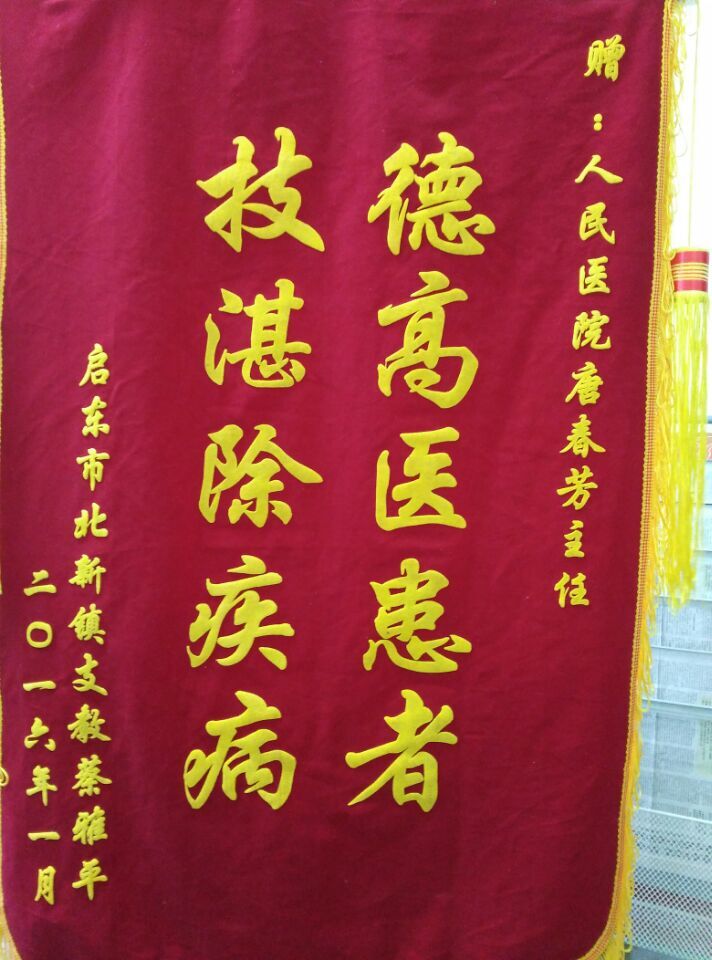 赠：人民医院唐春芳主任
德高医患者
技湛除疾病
启东市北新镇支教蔡雅平
二〇一六年一月